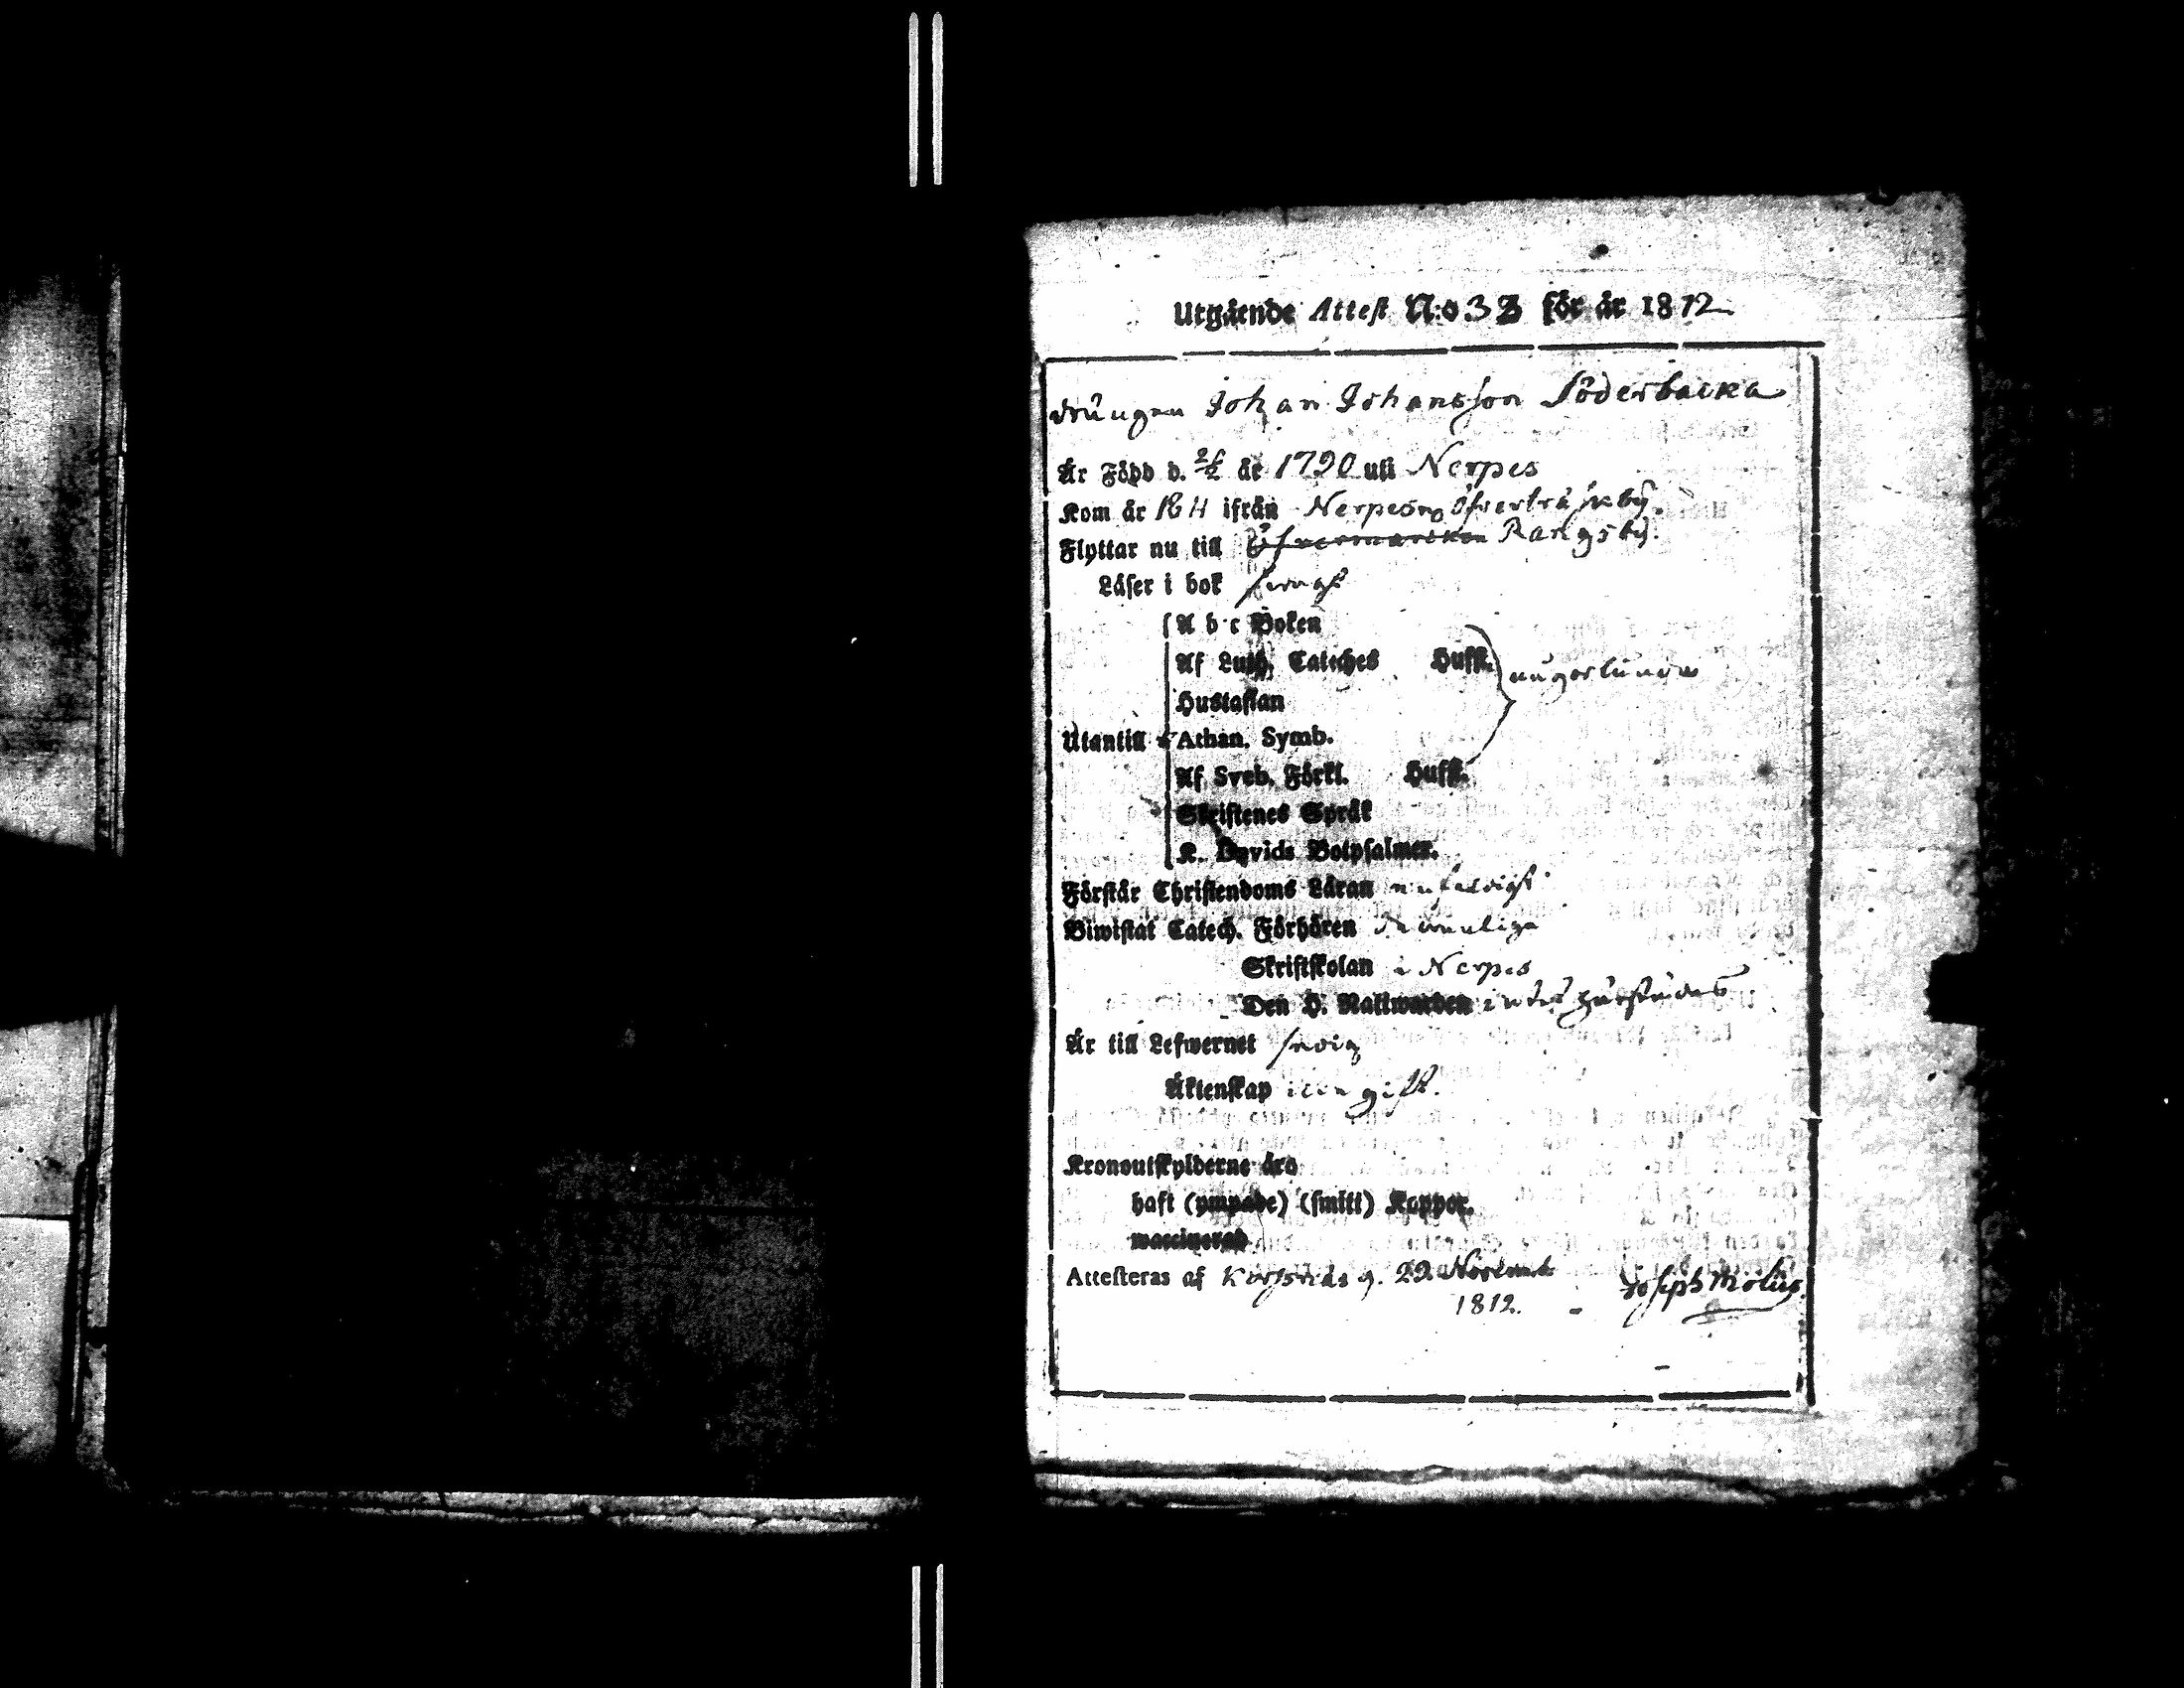 Utgående Attest N:o 33 för år 1812
drängen Johan Johansson Söderbacka
År Född d. år 1790 uti Nerpes
Kom år 1811 ifrån Nerpes Öfverträskby.
Flyttar nu till Öfvermarcken Rangsby.
Läser i bok svagt
A b c Boken
Af Luth. Cateches Hufst.
Hustaflan
Utantill Athan. Symb.
Af Sveb. Förkl. Hufst.
Skriftenes Språk
K. Davids Botpsalmer.
Förstår Christendoms Läran enfaldigt
Biwistat Catech. Förhören
Skriftskolan i Nerpes
Den H. Nattwarden
Är till Lefwernet fredig
Äktenskap ogift.
Kronoutskylderne äro
haft (ympade) (smitt) Koppor.
waccinerad
Attesteras af Korsnäs d. 29. Novemb.
1812. Joseph Molius